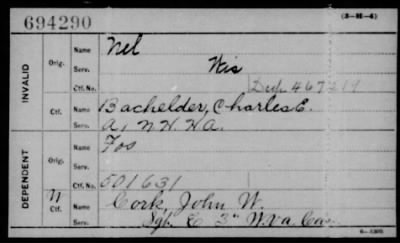 694290
(3-H-4)
INVALID
Orig.
Name
Nel
Serv.
Wis
Ctf. No.
Ded. 467219
Ctf.
Name
Bachelder, Charles E.
Serv.
A, 1 N.H. H.A.
DEPENDENT
Orig.
Name
Fos
Serv.
Ctf. No.
501631
Ctf.
Name
Cork, John W.
Serv.
Sgt. C 3" W.Va Cav.
6-1300